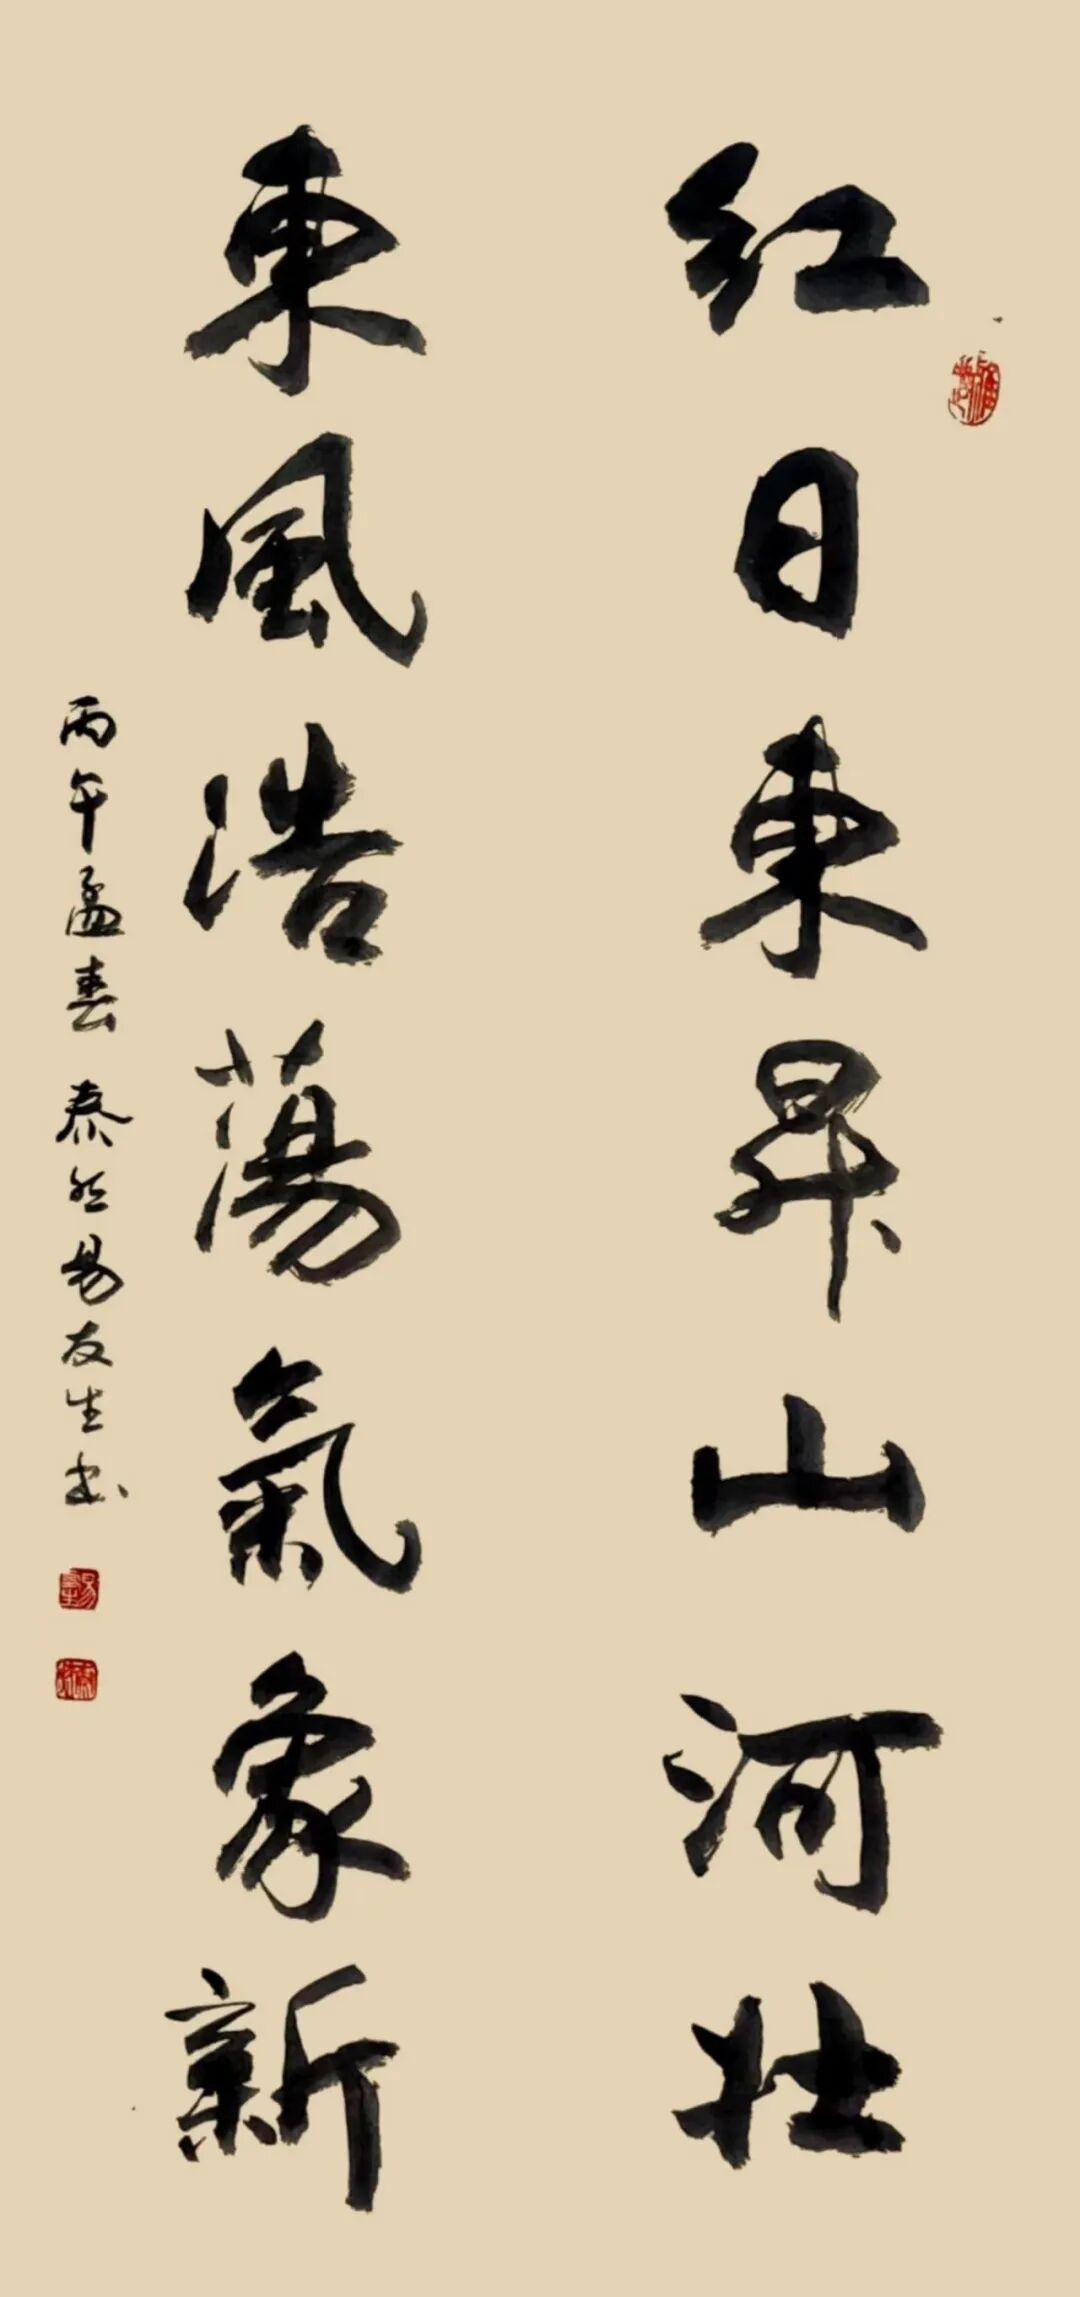 红日東昇山河壮
東風浩蕩氣象新
丙午孟春 泰然易友生书